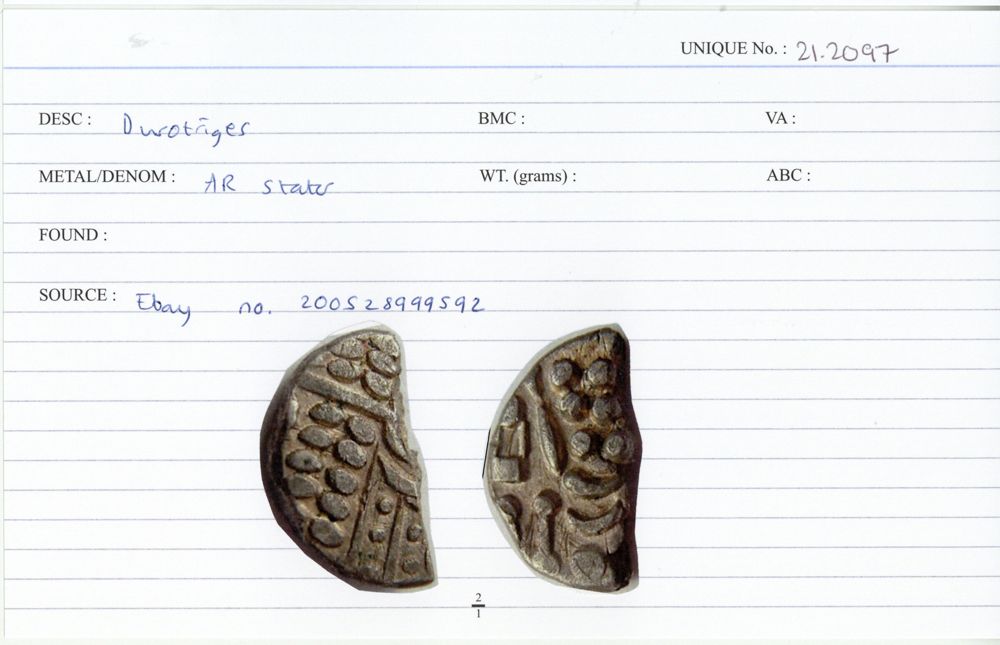 UNIQUE No. : 21.2097
DESC : Durotriges BMC : VA :
METAL/DENOM : AR stater WT. (grams) : ABC :
FOUND :
SOURCE : Ebay no. 200528999592
2
1